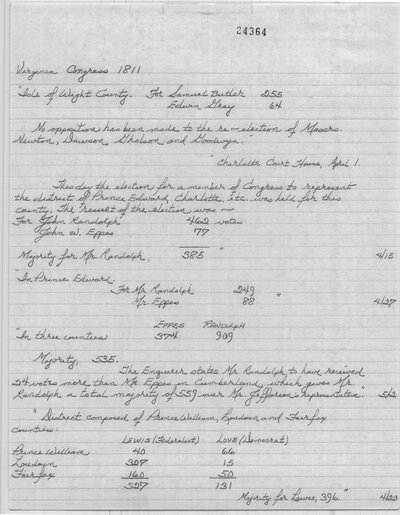 24364
Virginia Congress 1811
"Isle of Wight County. For Samuel Butler 255
Edwin Gray 64
No opposition has been made to the re-election of Messrs.
Newton, Dawson, Gholson and Goodwyn."
"Charlotte Court House, April 1.
This day the election for a member of Congress to represent
the district of Prince Edward, Charlotte, etc. was held for this
county. The result of the election was —
For John Randolph 462 votes
John W. Eppes 77
Majority for Mr. Randolph, 385 " 4/15
"In Prince Edward
For Mr. Randolph 249
Mr. Eppes 88 " 4/27
EPPES RANDOLPH
"In three counties 374 909
Majority, 535.
The Enquirer states Mr. Randolph to have received
24 votes more than Mr. Eppes in Cumberland, which gives Mr.
Randolph a total majority of 559 over Mr. Jefferson's representative. 5/2
"District composed of Prince William, Loudoun and Fairfax
counties:
LEWIS (Federalist) LOVE (Democrat)
Prince William 40 66
Loudoun 327 15
Fairfax 160 50
527 131
Majority for Lewis, 396." 4/20